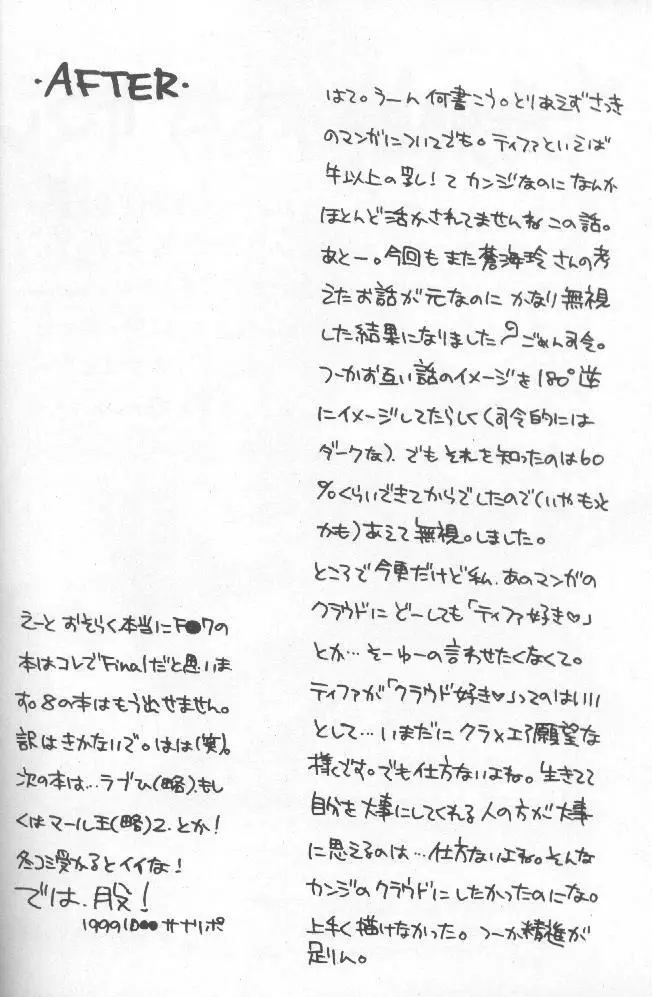 ・AFTER・
はて。うーん 何書こう。とりあえずさっき
のマンガについてでも。ティファといえば
牛以上の乳！て カンジなのに なんか
ほとんど活かされてませんね この話。
あとー。今回も また 蒼海玲 さんの考
えたお話が元なのに かなり 無視
した結果になりました ごめん司令。
つーかお互い話のイメージを180°逆
にイメージしてたらしく（司令的には
ダークな）。でも それを知ったのは60
%くらいできてからでしたので（いやもっと
かも）あえて 無視。しました。
ところで今更だけど私、あのマンガの
クラウドに どーしても「ティファ好き♡」
とか…そーゆーの言わせたくなくて。
ティファが「クラウド好き♡」ってのはいい
として…いまだに クラ×エア願望な
様です。でも仕方ないよね。生きてて
自分を大事にしてくれる人の方が大事
に思えるのは…仕方ないよね。そんな
カンジのクラウドに したかったのにな。
上手く描けなかった。つーか精進が
足りん。
えーと おそらく本当にF●7の
本はコレでFinalだと思いま
す。8の本はもう出せません。
訳はきかないで。はは（笑）。
次の本は…ラブひ（略）もし
くはマール王（略）2. とか！
冬コミ受かるとイイな！
では、股！
1999 10●● サナリポ